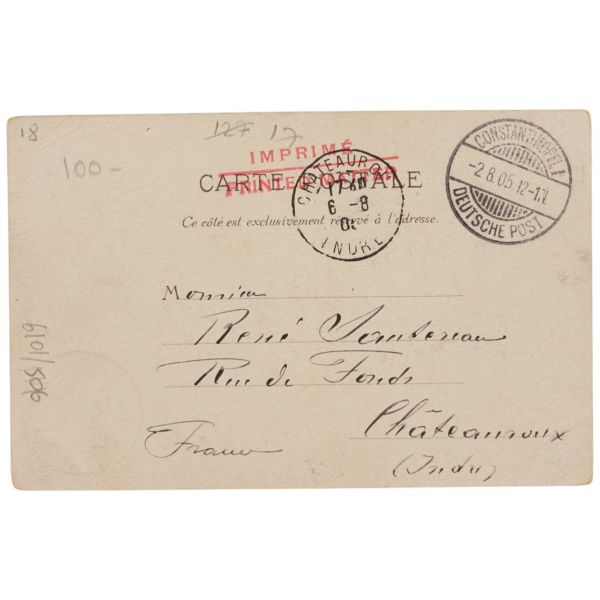 18
127 17
100-
IMPRIMÉ
PRINTED MATTER
CARTE POSTALE
Ce côté est exclusivement réservé à l'adresse.
CHATEAUROUX
6 -8
INDRE
CONSTANTINOPEL 1
-2.8.05.12-1.N.
DEUTSCHE POST
Monsieur
René
Rue de Fonds
Châteauroux
(Indre)
France
905/1019